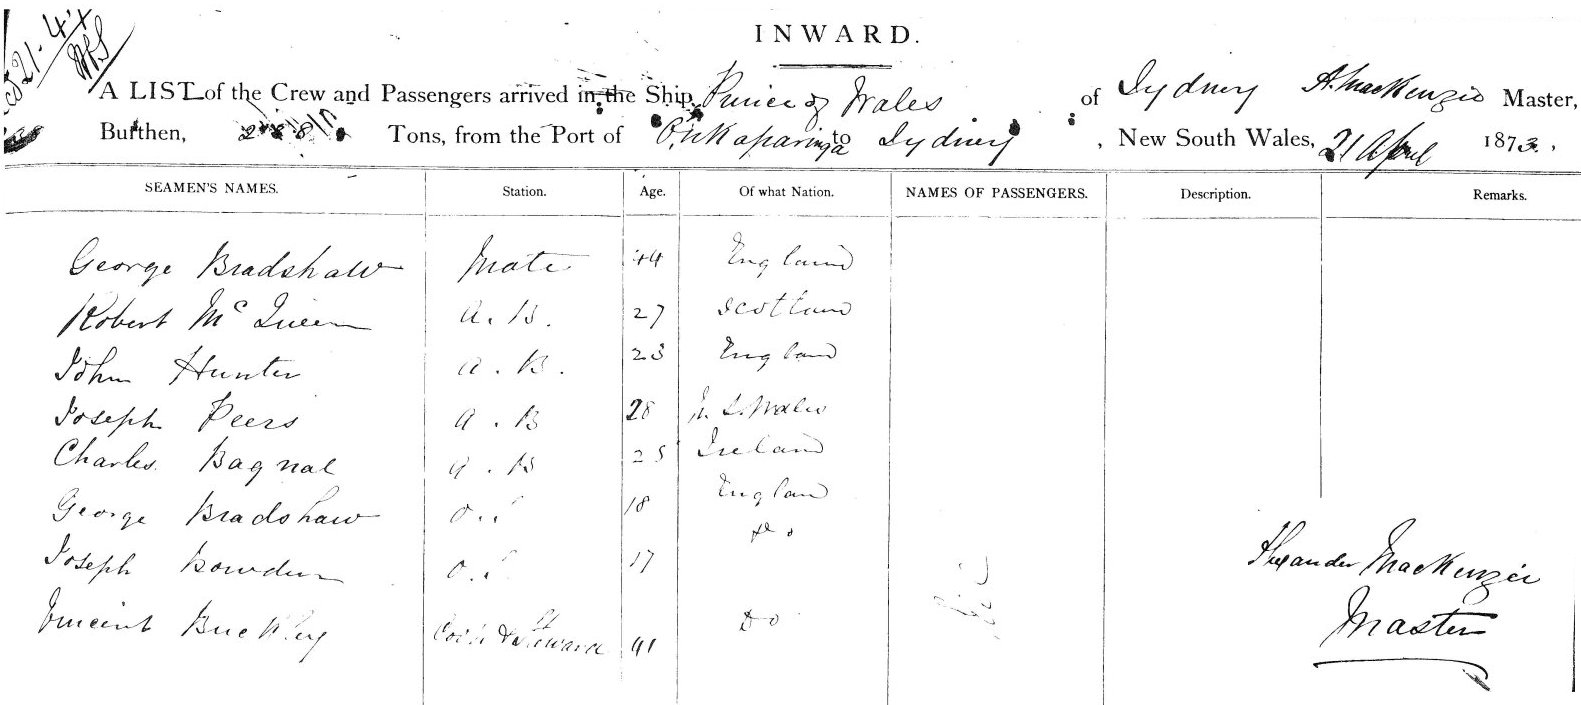 21.4
INWARD.
A LIST of the Crew and Passengers arrived in the Ship Prince of Wales of Sydney A. MacKenzie Master,
Burthen, Tons, from the Port of Onkaparinga to Sydney, New South Wales, 21 April 1873.,
SEAMEN'S NAMES. Station. Age. Of what Nation. NAMES OF PASSENGERS. Description. Remarks.
George Bradshaw Mate 44 England
Robert McQueen A.B. 27 Scotland
John Hunter A.B. 23 England
Joseph Peers A.B 28 N.S.Wales
Charles Bagnal A.B 25 Ireland
George Bradshaw O.S 18 England
Joseph Bowden O.S 17 Do
Vincent Buckley Cook & Steward 41 Do
Nil
Alexander MacKenzie
Master